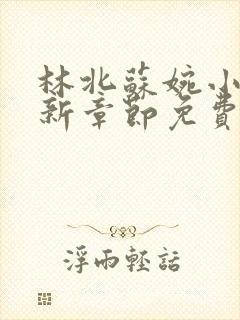 林北蘇婉小
新章節免費
浮雨輕話